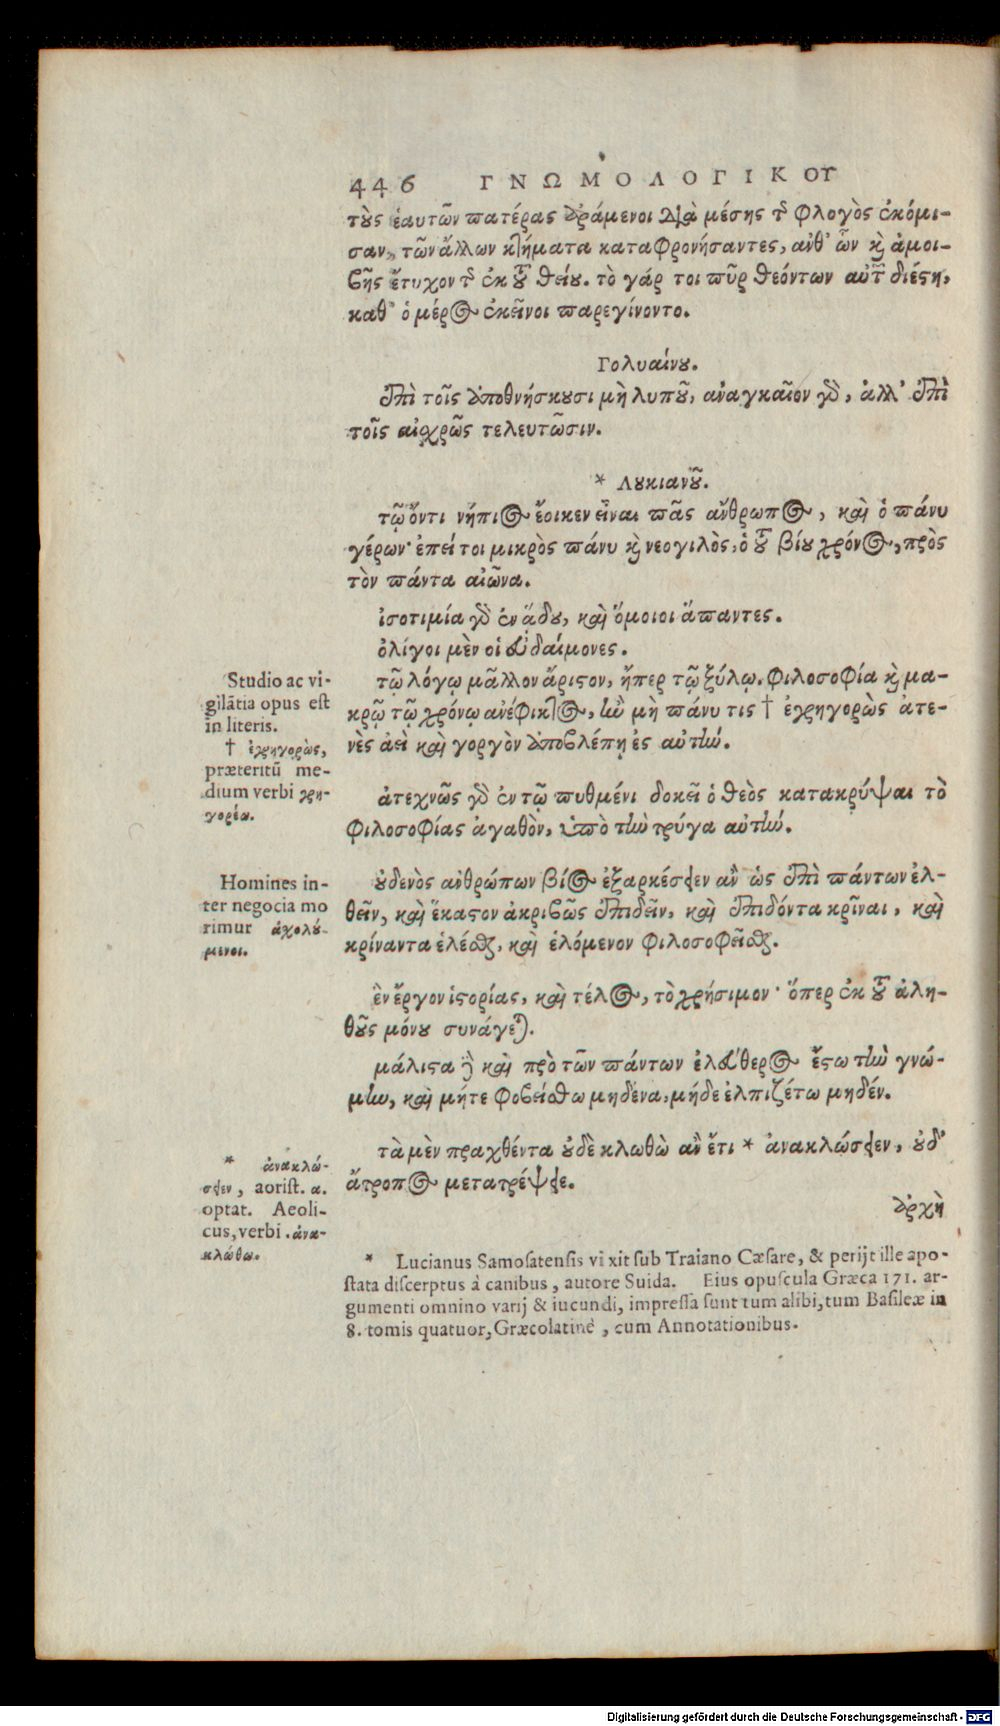 446 ΓΝΩΜΟΛΟΓΙΚΟΥ
τοὺς ἑαυτῶν πατέρας ἀράμενοι διὰ μέσης τῆς φλογὸς ἐκόμι-
σαν, τῶν ἄλλων κτήματα καταφρονήσαντες, ἀνθ' ὧν καὶ ἀμοι-
βῆς ἔτυχον τῆς ἐκ τοῦ θείου. τὸ γάρ τοι πῦρ θεόντων αὐτῶν διέστη,
καθ' ὃ μέρος ἐκεῖνοι παρεγίνοντο.
Γολυαίνου.
ἐπὶ τοῖς ἀποθνήσκουσι μὴ λυποῦ, ἀναγκαῖον γὰρ, ἀλλ' ἐπὶ
τοῖς αἰσχρῶς τελευτῶσιν.
* Λουκιανοῦ.
τῷ ὄντι νήπιος ἔοικεν εἶναι πᾶς ἄνθρωπος, καὶ ὁ πάνυ
γέρων· ἐπεί τοι μικρὸς πάνυ καὶ νεογιλὸς, ὁ τοῦ βίου χρόνος, πρὸς
τὸν πάντα αἰῶνα.
ἰσοτιμία γὰρ ἐν ᾅδου, καὶ ὅμοιοι ἅπαντες.
ὀλίγοι μὲν οἱ εὐδαίμονες.
Studio ac vi-
gilãtia opus est
in literis.
† ἐγρηγορὼς,
præteritũ me-
dium verbi γρη-
γορέω.
τῷ λόγῳ μᾶλλον ἄριστον, ἤπερ τῷ ξύλῳ. φιλοσοφία καὶ μα-
κρῷ τῷ χρόνῳ ἀνέφικτος, ἢν μὴ πάνυ τις † ἐγρηγορὼς ἀτε-
νὲς ἀεὶ καὶ γοργὸν ἀποβλέπῃ ἐς αὐτήν.
ἀτεχνῶς γὰρ ἐν τῷ πυθμένι δοκεῖ ὁ θεὸς κατακρύψαι τὸ
φιλοσοφίας ἀγαθὸν, ὑπὸ τὴν τρύγα αὐτήν.
Homines in-
ter negocia mo
rimur ἀχολού-
μενοι.
οὐδενὸς ἀνθρώπων βίος ἐξαρκέσειεν ἂν ὡς ἐπὶ πάντων ἐλ-
θεῖν, καὶ ἕκαστον ἀκριβῶς ἐπιδεῖν, καὶ ἐπιδόντα κρῖναι, καὶ
κρίναντα ἑλέσθαι, καὶ ἑλόμενον φιλοσοφεῖσθαι.
ἓν ἔργον ἱστορίας, καὶ τέλος, τὸ χρήσιμον· ὅπερ ἐκ τοῦ ἀλη-
θοῦς μόνου συνάγεται.
μάλιστα δὲ καὶ πρὸ τῶν πάντων ἐλεύθερος ἔστω τὴν γνώ-
μην, καὶ μήτε φοβείσθω μηδένα, μήδε ἐλπιζέτω μηδέν.
* ἀνακλώ-
σειεν, aorist. α.
optat. Aeoli-
cus, verbi. ἀνα-
κλώθω.
τὰ μὲν πραχθέντα οὐδὲ κλωθὼ ἂν ἔτι * ἀνακλώσειεν, οὐδ'
ἄτροπος μετατρέψειε.
ἀρχὴ
* Lucianus Samosatensis vixit sub Traiano Cæsare, & perijt ille apo-
stata discerptus à canibus, autore Suida. Eius opuscula Græca 171. ar-
gumenti omnino varij & iucundi, impressa sunt tum alibi, tum Basileæ in
8. tomis quatuor, Græcolatinè, cum Annotationibus.
Digitalisierung gefördert durch die Deutsche Forschungsgemeinschaft - DFG